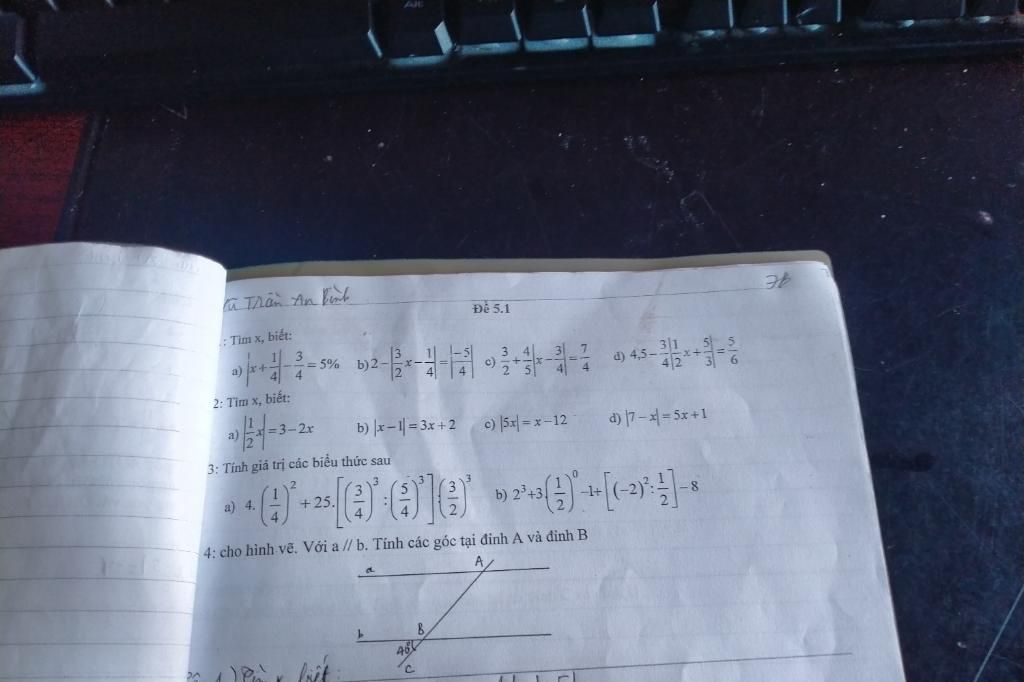 Trần An Bình 7B
Đề 5.1
: Tìm x, biết:
a) |x + 1/4| − 3/4 = 5% b) 2 − |3/2 x − 1/4| = |−5/4| c) 3/2 + 4/5 |x − 3/4| = 7/4 d) 4,5 − 3/4 |1/2 x + 5/3| = 5/6
2: Tìm x, biết:
a) |1/2 x| = 3 − 2x b) |x − 1| = 3x + 2 c) |5x| = x − 12 d) |7 − x| = 5x + 1
3: Tính giá trị các biểu thức sau
a) 4. (1/4)² + 25. [(3/4)³ : (5/4)³] : (3/2)³ b) 2³ + 3. (1/2)⁰ − 1 + [(−2)² : 1/2] − 8
4: cho hình vẽ. Với a // b. Tính các góc tại đỉnh A và đỉnh B
a A
b B
40°
C